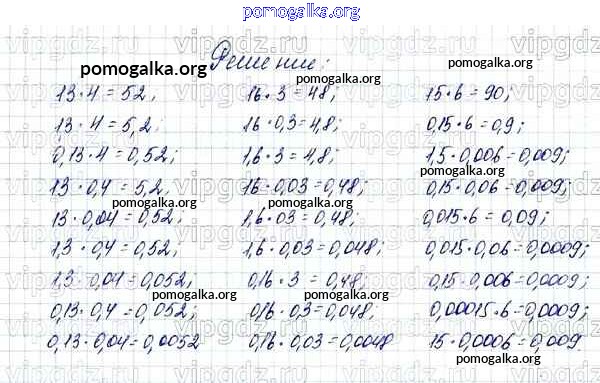 pomogalka.org
vipgdz.ru vipgdz.ru vipgdz.ru
Решение:
pomogalka.org pomogalka.org
13·4=52; 16·3=48; 15·6=90;
13·4=5,2; 16·0,3=4,8; 0,15·6=0,9;
0,13·4=0,52; 1,6·3=4,8; 1,5·0,006=0,009;
pomogalka.org
13·0,4=5,2. 16·0,03=0,48; 0,15·0,06=0,009;
pomogalka.org pomogalka.org
13·0,04=0,52; 1,6·03=0,48; 0,015·6=0,09;
1,3·0,4=0,52; 1,6·0,03=0,048; 0,015·0,06=0,0009;
pomogalka.org
1,3·0,04=0,052; 0,16·3=0,48; 0,15·0,006=0,0009;
pomogalka.org pomogalka.org
0,13·0,4=0,052; 0,16·03=0,048; 0,00015·6=0,0009;
0,13·0,04=0,0052 0,16·0,03=0,0048 15·0,0006=0,009.
pomogalka.org